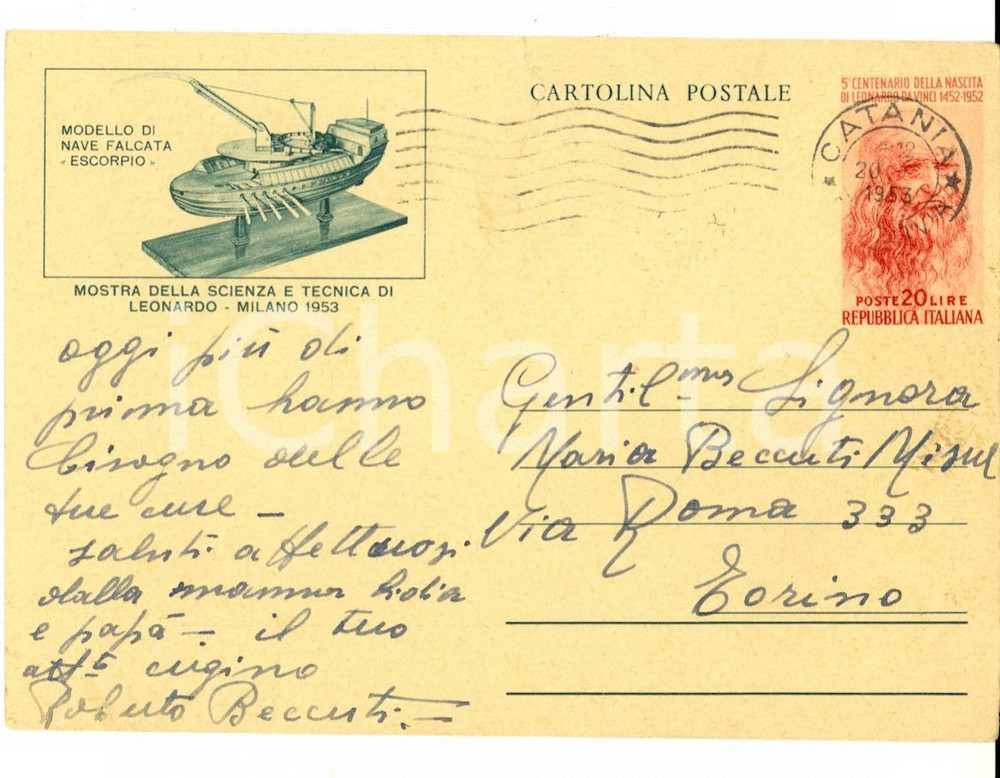 MODELLO DI
NAVE FALCATA
« ESCORPIO »
MOSTRA DELLA SCIENZA E TECNICA DI
LEONARDO - MILANO 1953
CARTOLINA POSTALE
5° CENTENARIO DELLA NASCITA
DI LEONARDO DA VINCI 1452-1952
CATANIA
20
1953
POSTE 20 LIRE
REPUBBLICA ITALIANA
iCharta
oggi più di
prima hanno
bisogno delle
tue cure -
saluti affettuosi
dalla mamma Lidia
e papà - il tuo
aff.to cugino
Roberto Beccuti. -
Gentil.ma Signora
Maria Beccuti
Via Roma 333
Torino